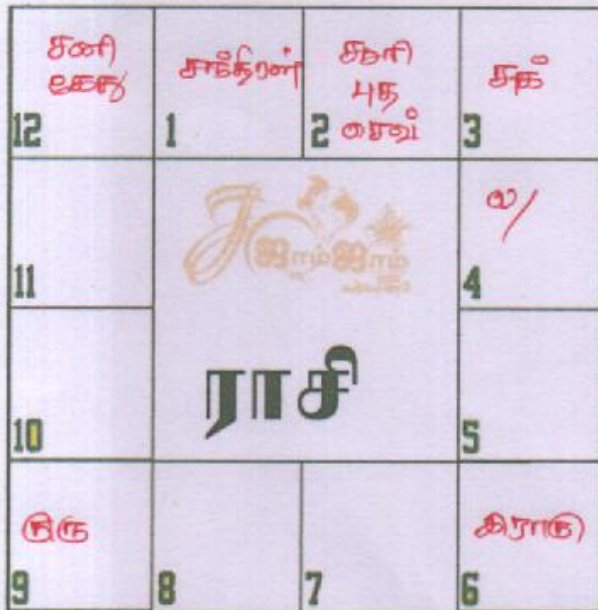 சனி
கேது
12
சந்திரன்
1
சூரி
புத
செவ்
2
சுக்
3
ல/
4
11
ஜாம் ஜாம்
ராசி
10
5
குரு
9
8
7
இராகு
6